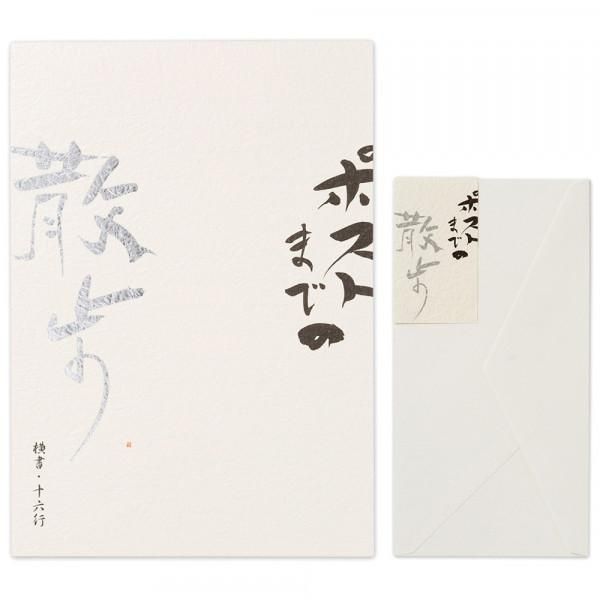 ポスト
までの
散歩
横書・十六行
ポスト
までの
散歩